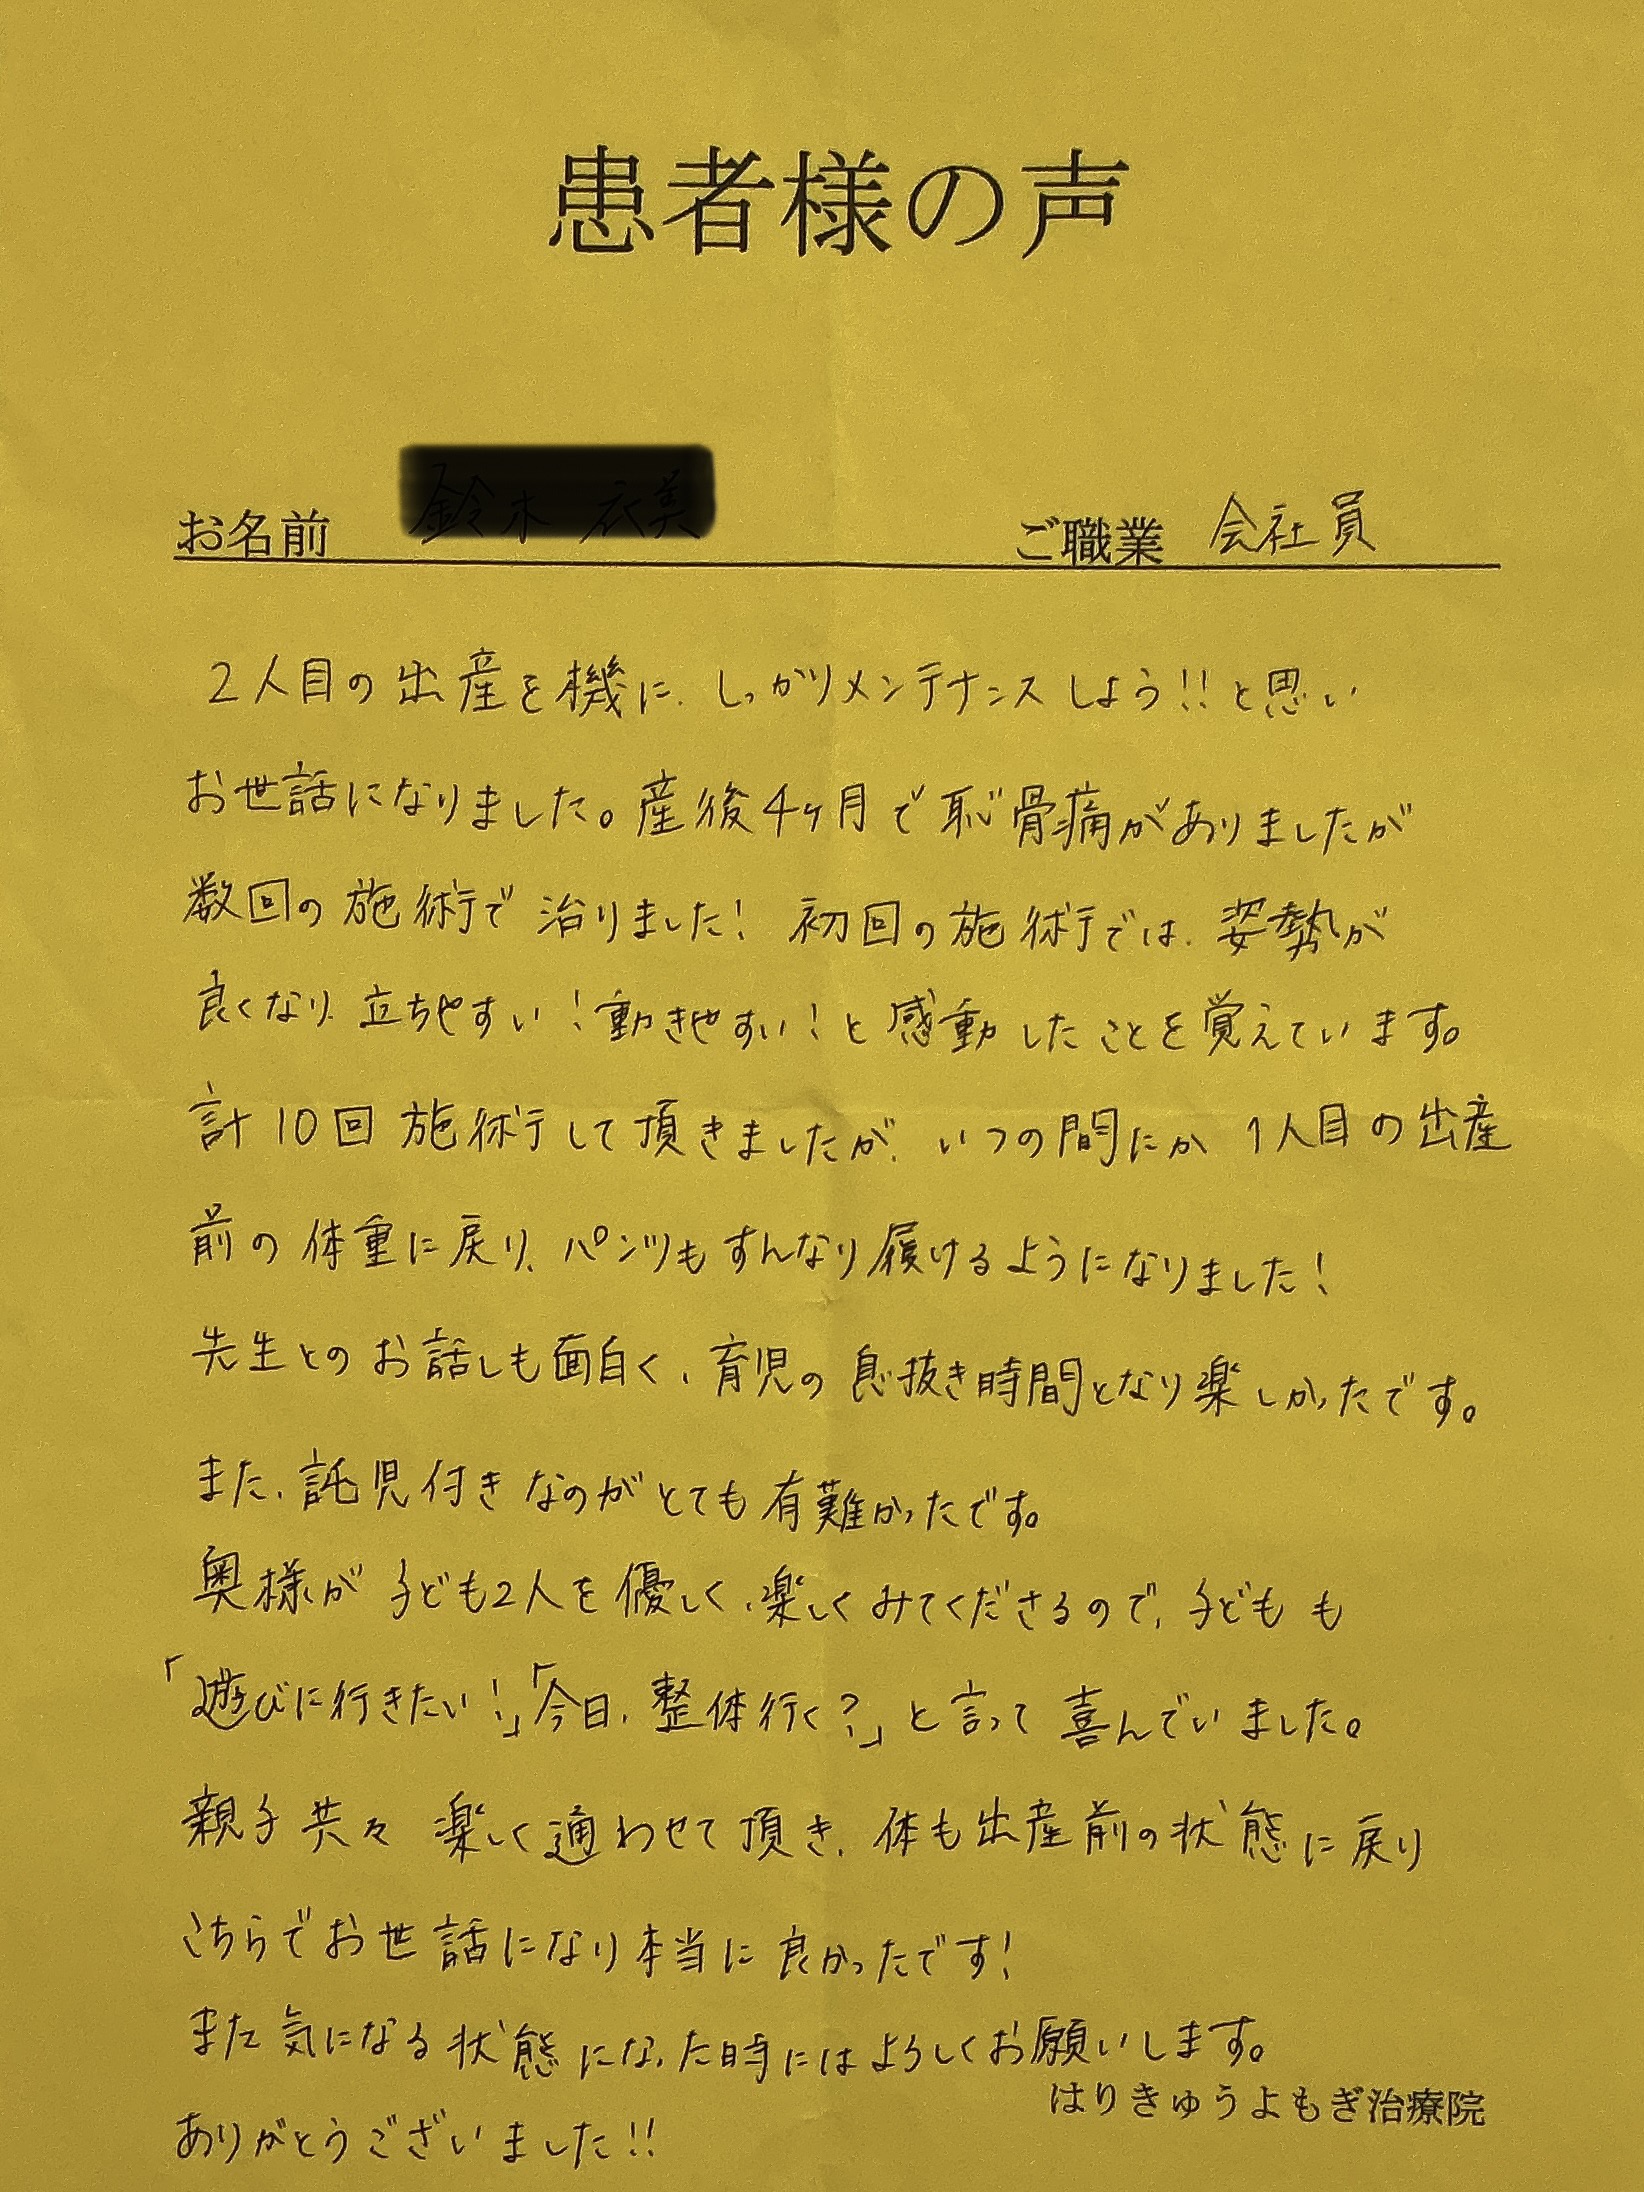 患者様の声
お名前 ご職業 会社員
2人目の出産を機に、しっかりメンテナンスしよう!!と思い
お世話になりました。産後4ヶ月で恥骨痛がありましたが
数回の施術で治りました! 初回の施術では、姿勢が
良くなり、立ちやすい!動きやすい!と感動したことを覚えています。
計10回施術して頂きましたが、いつの間にか1人目の出産
前の体重に戻り、パンツもすんなり履けるようになりました!
先生とのお話しも面白く、育児の息抜き時間となり楽しかったです。
また、託児付きなのがとても有難かったです。
奥様が子ども2人を優しく、楽しくみてくださるので、子どもも
「遊びに行きたい!」「今日、整体行く?」と言って喜んでいました。
親子共々楽しく通わせて頂き、体も出産前の状態に戻り
こちらでお世話になり本当に良かったです!
また気になる状態になった時にはよろしくお願いします。
はりきゅうよもぎ治療院
ありがとうございました!!